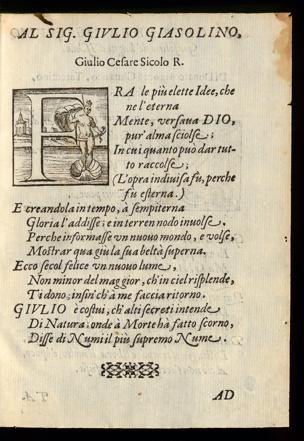 AL SIG. GIVLIO GIASOLINO,
Giulio Cesare Sicolo R.
FRA le più elette Idee, che
ne l'eterna
Mente, versaua DIO,
pur'alma sciolse;
In cui quanto può dar tut-
to raccolse;
(L'opra indiuisa fù, perche
fu esterna.)
E creandola in tempo, à sempiterna
Gloria l'addisse; e in terren nodo inuolse,
Perche informasse vn nuouo mondo, e volse,
Mostrar qua giu la sua beltà superna.
Ecco secol felice vn nuouo lume,
Non minor del maggior, ch'in ciel risplende,
Ti dono; insin ch'à me faccia ritorno.
GIVLIO è costui, ch'alti secreti intende
Di Natura; onde à Morte hà fatto scorno,
Disse di Numi il più supremo Nume.
AD